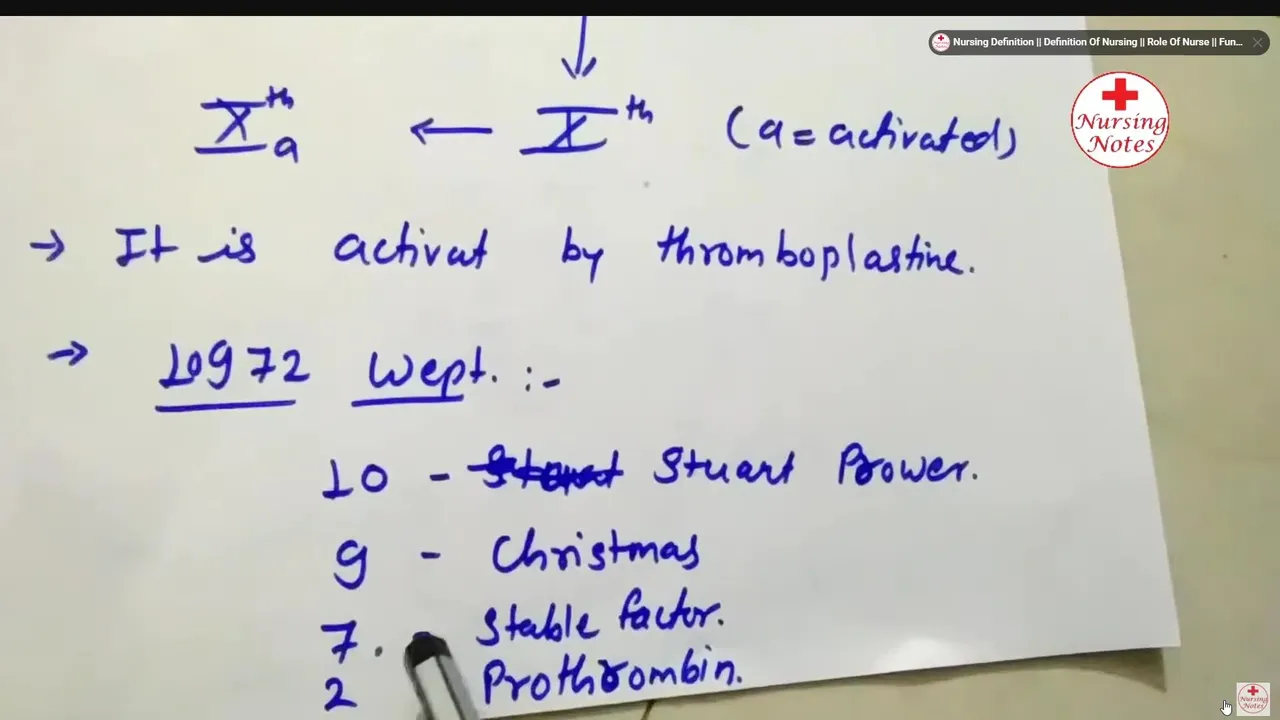 Nursing Definition || Definition Of Nursing || Role Of Nurse || Fun...
Nursing
Notes
Xᵗʰa ← Xᵗʰ (a = activated)
→ It is activat by thromboplastine.
→ 10972 Wept. :-
10 - Stuart Prower.
9 - Christmas
7. - Stable factor.
2 Prothrombin.
Nursing
Notes